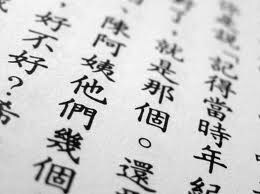 說「記得當時年紀
了，就是那個。還
、陳阿姨他們幾個
，好不好？希